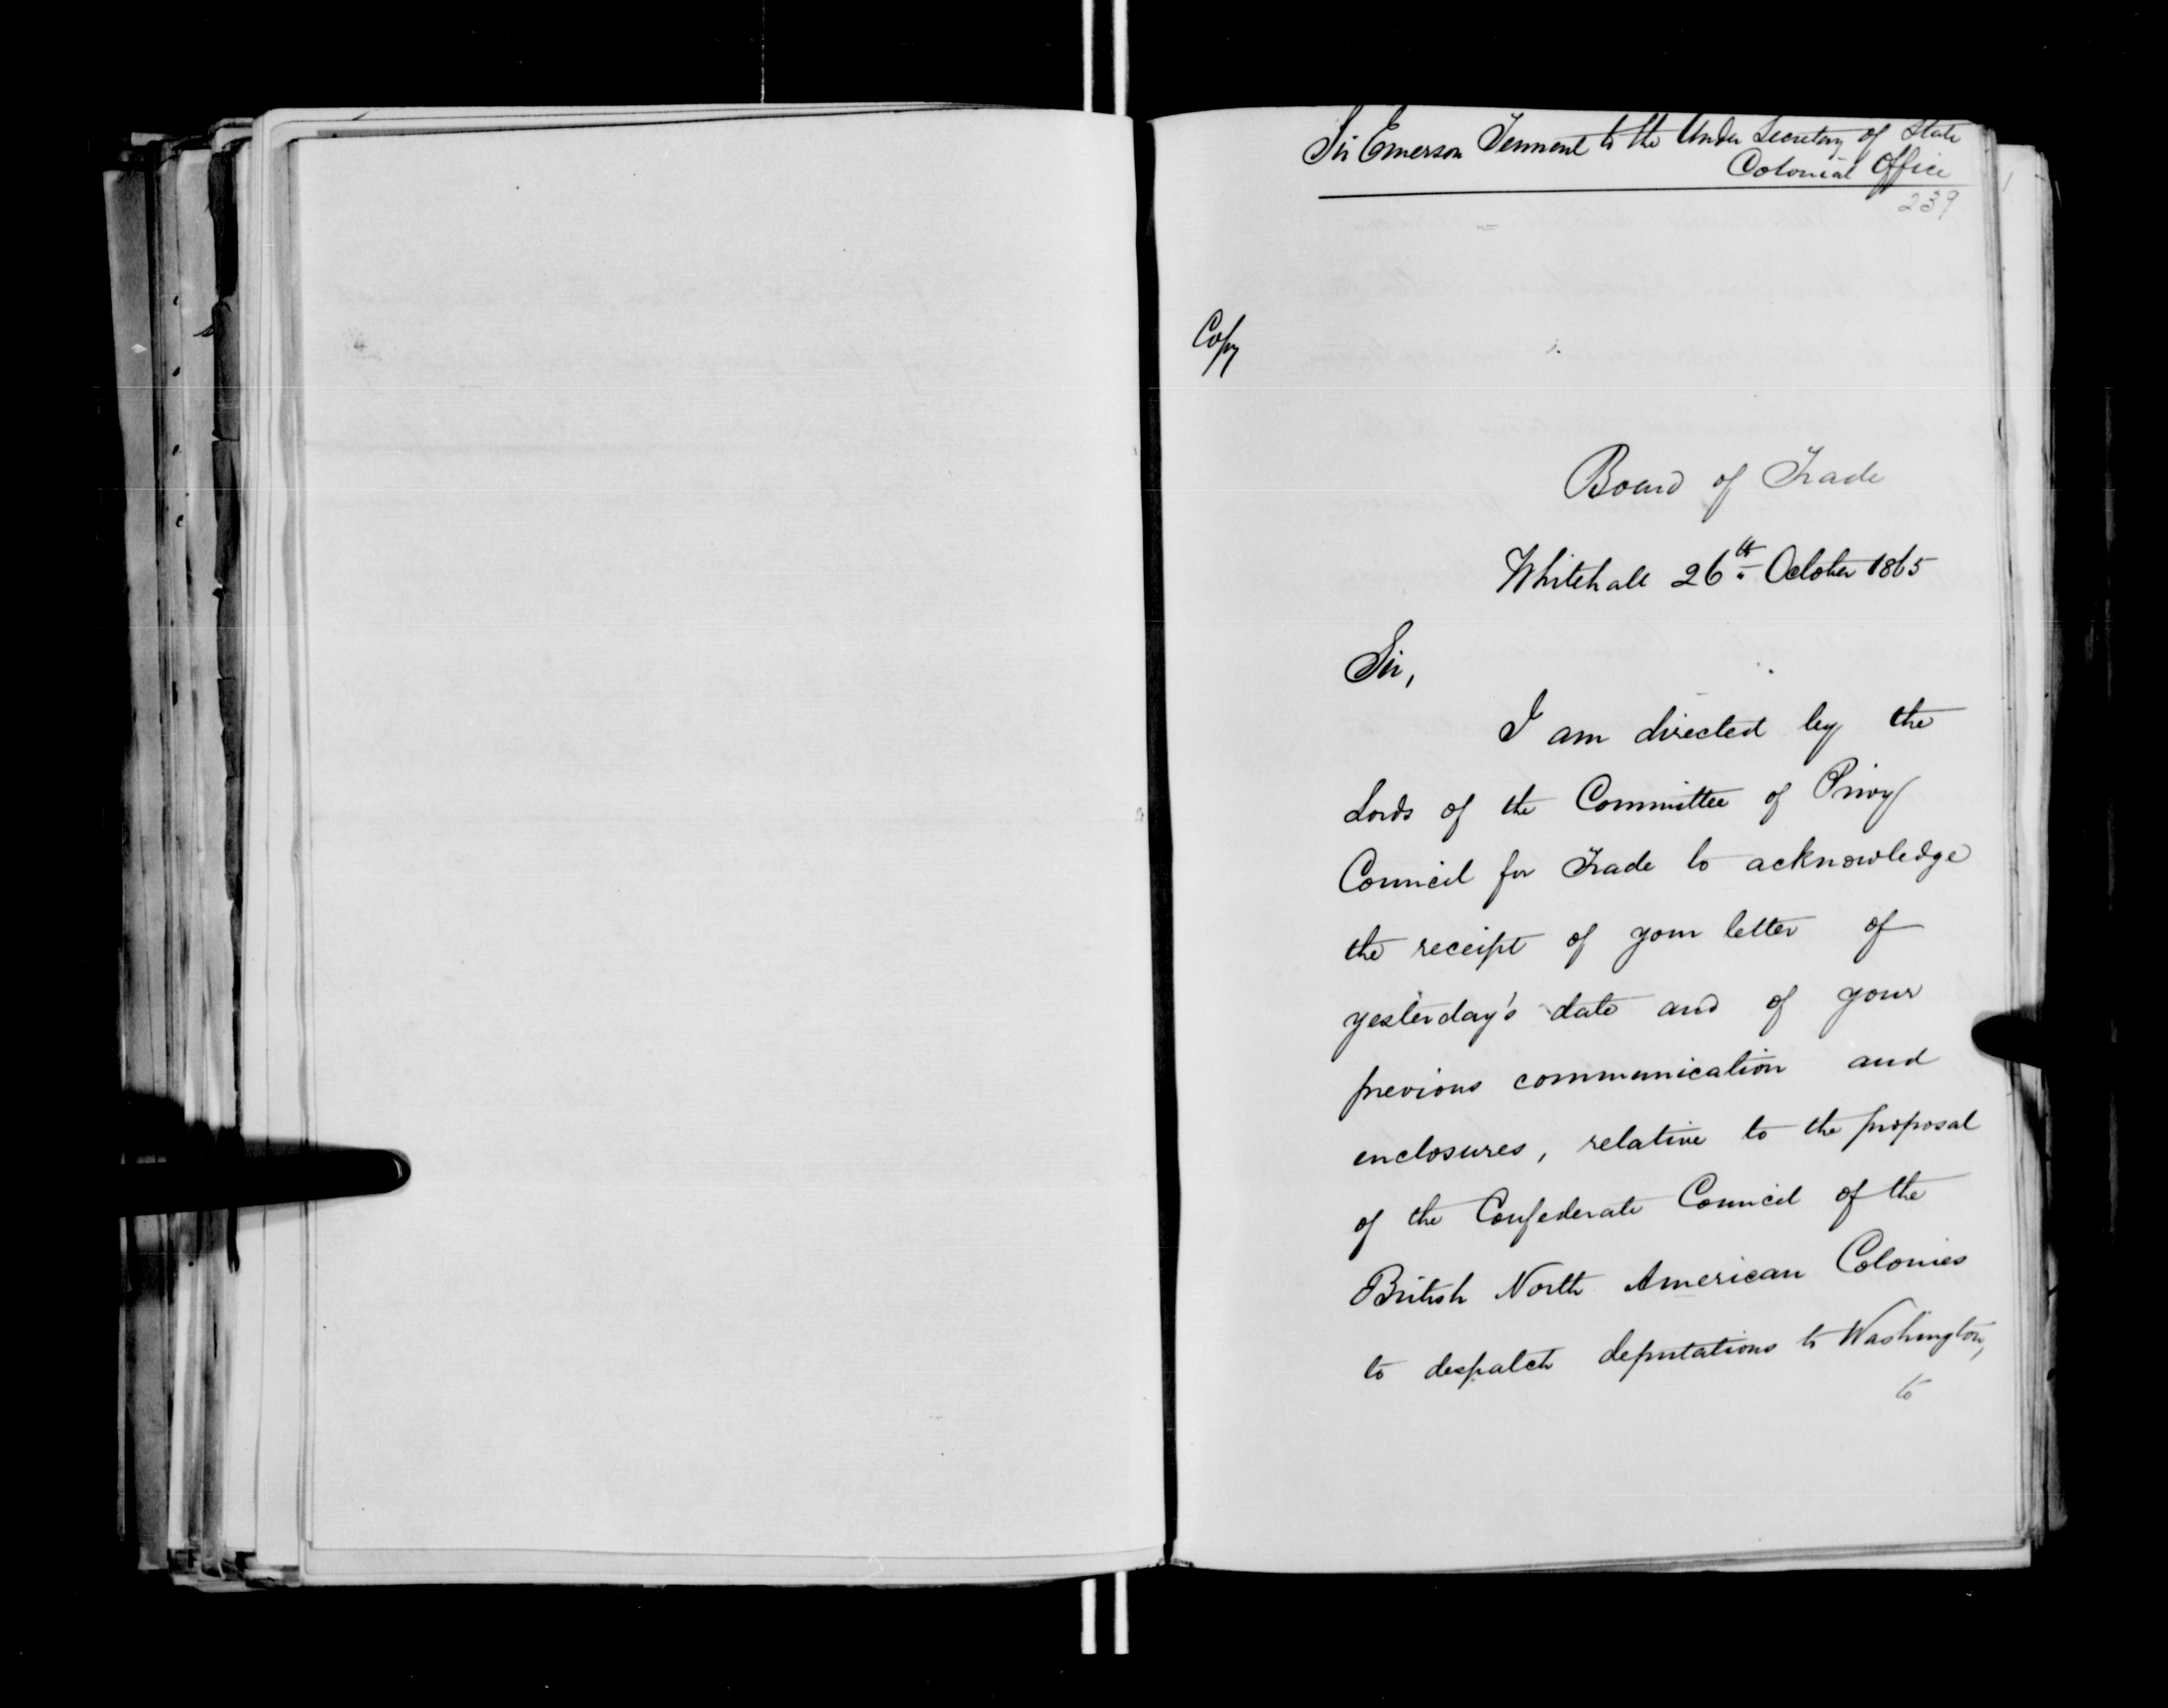 Sir Emerson Tennent to the Under Secretary of State
Colonial Office
239
Copy
Board of Trade
Whitehall 26th October 1865
Sir,
I am directed by the
Lords of the Committee of Privy
Council for Trade to acknowledge
the receipt of your letter of
yesterday's date and of your
previous communication and
enclosures, relative to the proposal
of the Confederate Council of the
British North American Colonies
to despatch deputations to Washington,
to